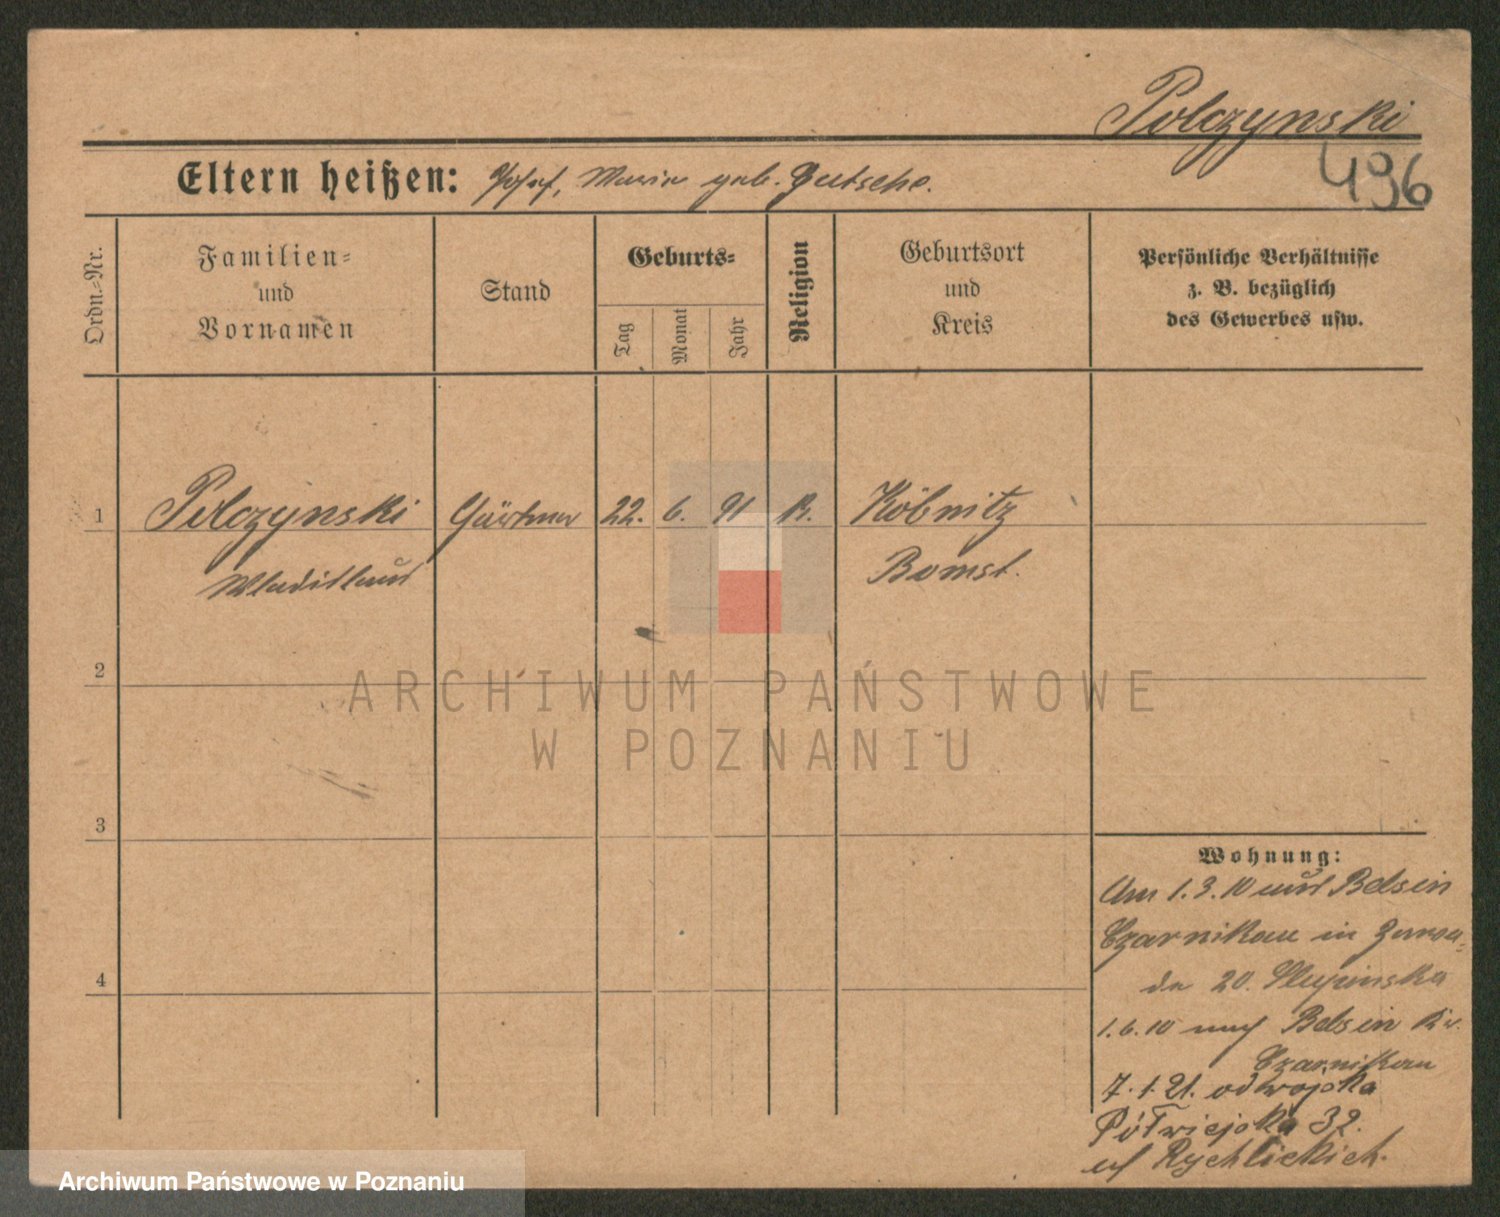 Polczynski
496
Eltern heißen: Josef, Maria geb. Gutsche.
Ordn.-Nr.
Familien- und Vornamen
Stand
Geburts-
Tag
Monat
Jahr
Religion
Geburtsort und Kreis
Persönliche Verhältnisse
z. B. bezüglich
des Gewerbes usw.
1 Polczynski Gärtner 22. 6. 91 K. Köbnitz
Wladislaus Bomst.
2
3
4
Wohnung:
Am 1.3.10 aus Belsin
Czarnikau in
20.
1.6.10 nach Belsin Kr.
Czarnikau
7.1.21. od wojska
Półwiejska 32.
Rychlickich.
ARCHIWUM PAŃSTWOWE
W POZNANIU
Archiwum Państwowe w Poznaniu